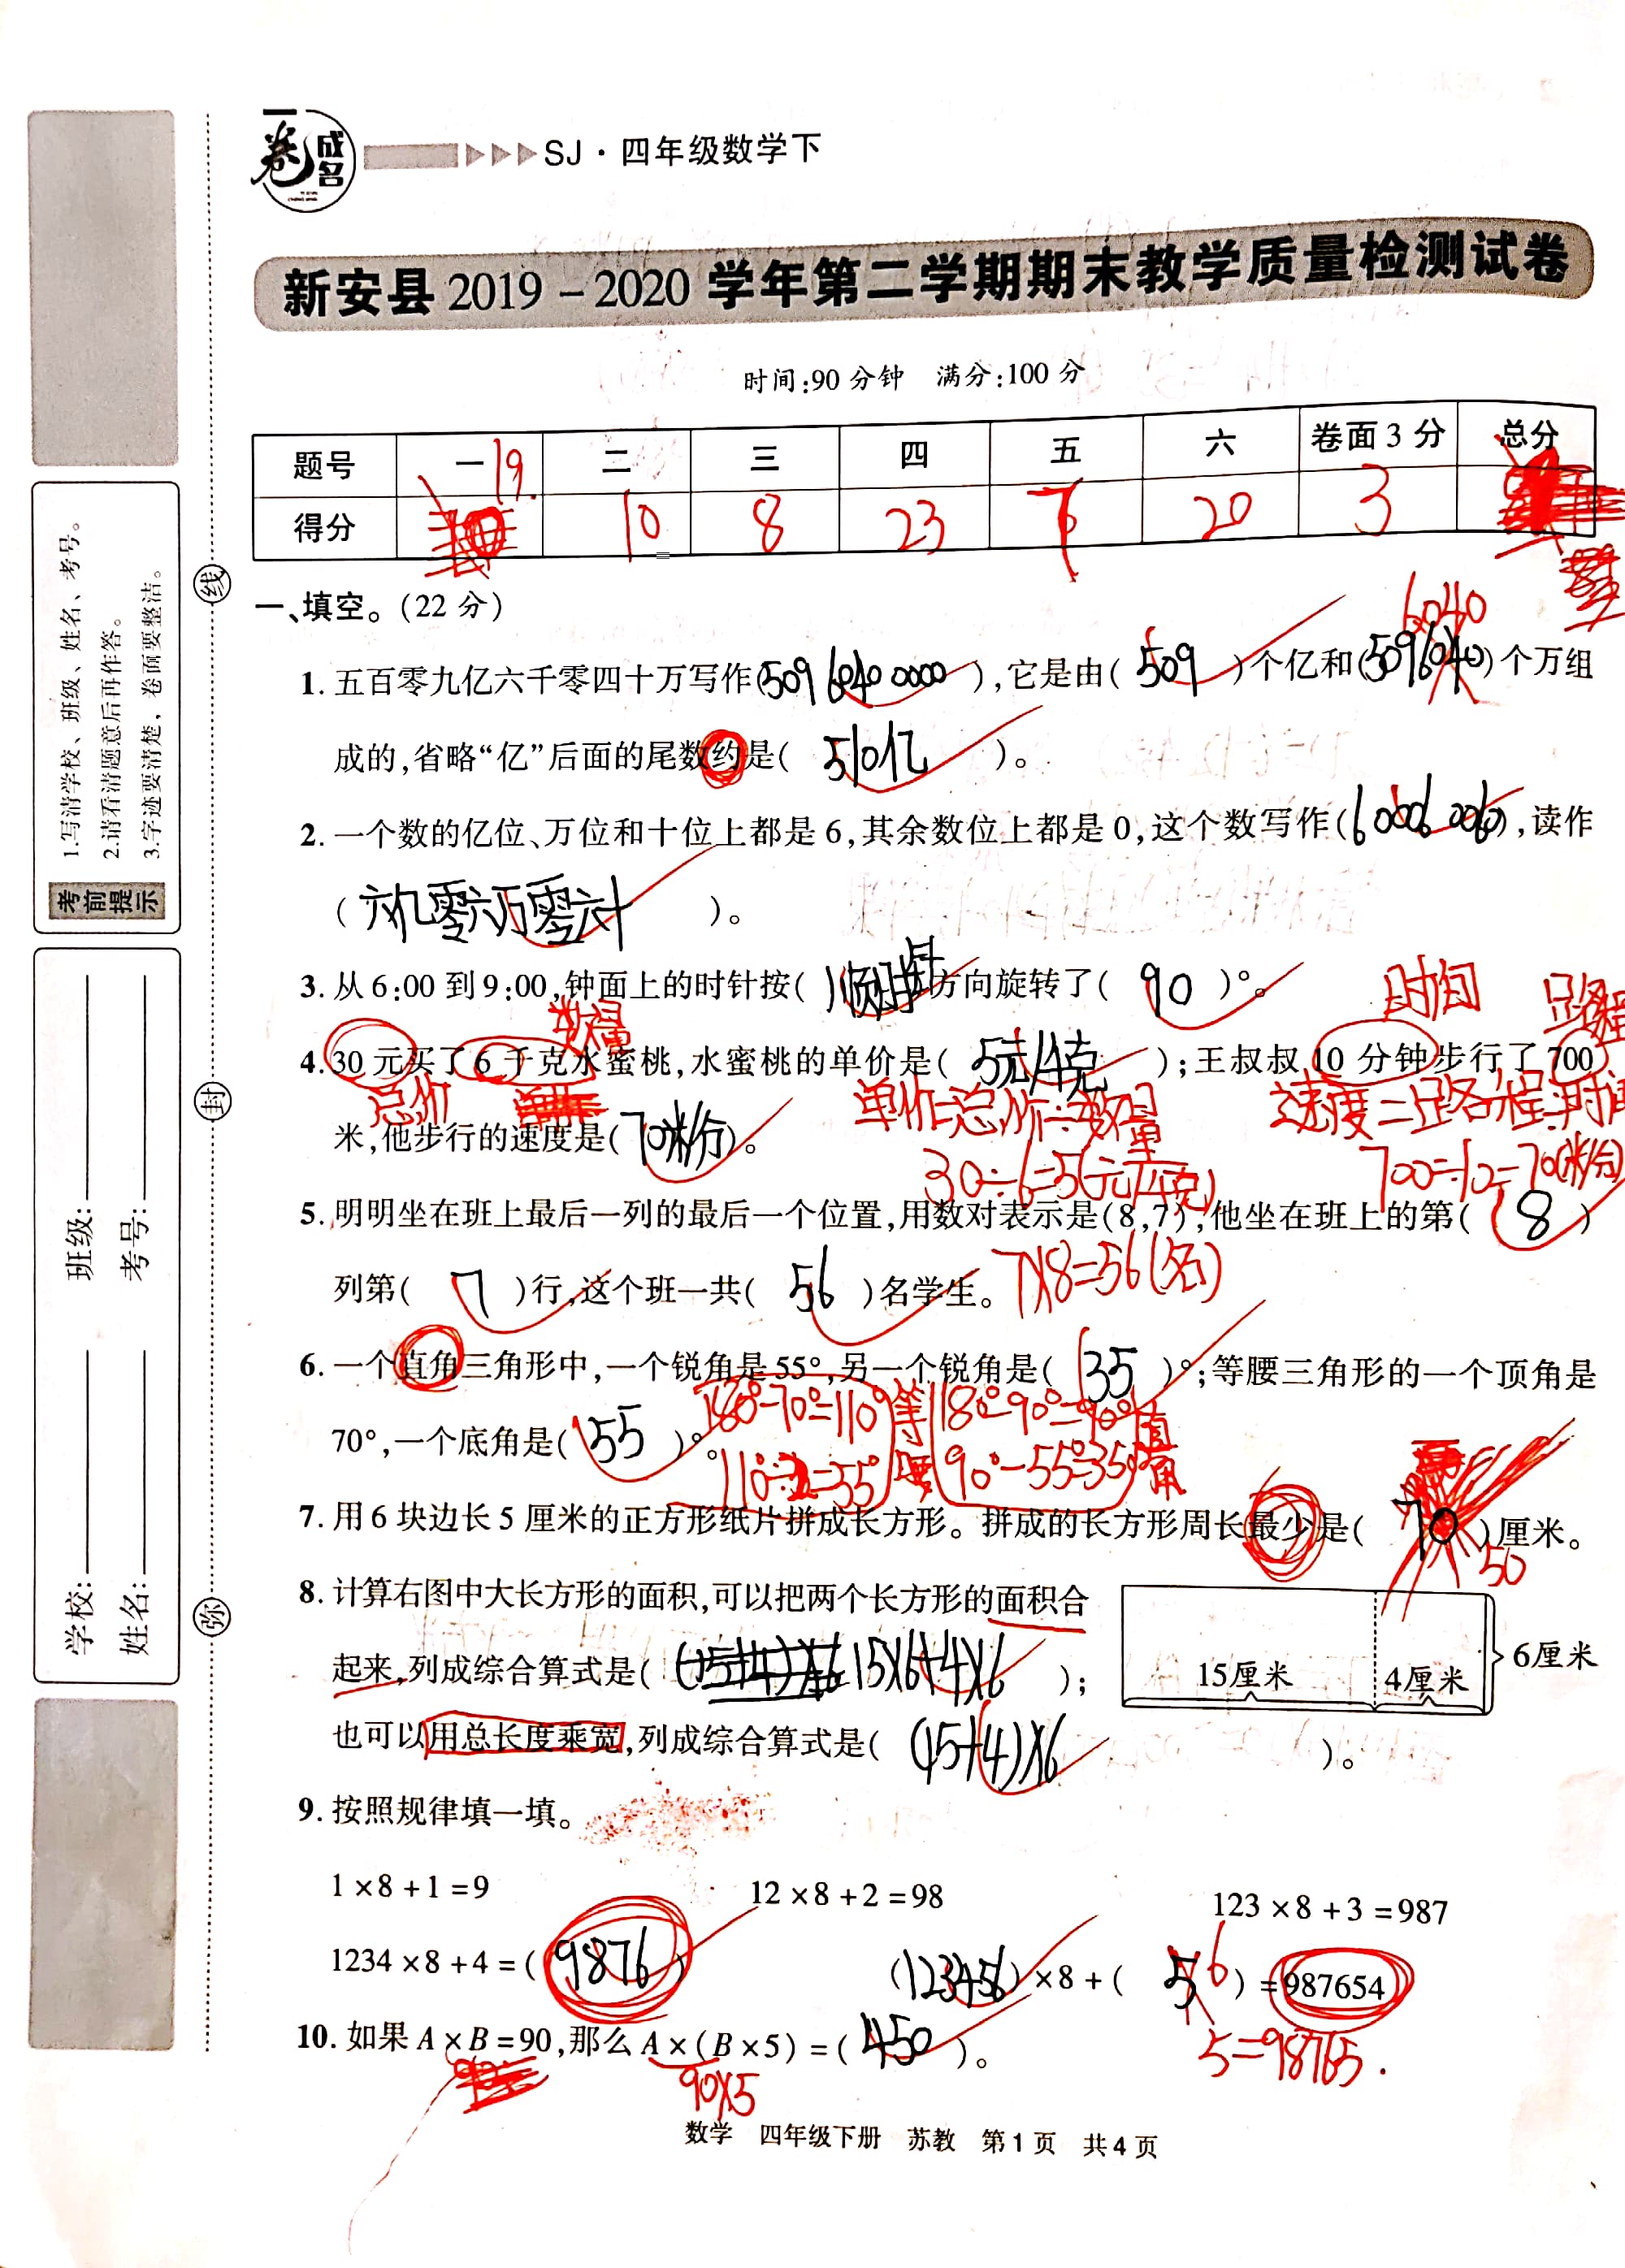 一卷成名 SJ·四年级数学下
新安县2019-2020学年第二学期期末教学质量检测试卷
时间:90分钟 满分:100分
题号 一 二 三 四 五 六 卷面3分 总分
19.
得分 10 8 23 7 20 3
考前提示
1.写清学校、班级、姓名、考号。
2.请看清题意后再作答。
3.字迹要清楚，卷面要整洁。
学校: 班级:
姓名: 考号:
线
封
弥
一、填空。(22分)
6040
1. 五百零九亿六千零四十万写作(50960400000),它是由(509)个亿和(5096040)个万组
成的,省略“亿”后面的尾数约是(510亿)。
2. 一个数的亿位、万位和十位上都是6,其余数位上都是0,这个数写作(600060060),读作
(六亿零六万零六十)。
3. 从6:00到9:00,钟面上的时针按(顺时针)方向旋转了(90)°。
数量 时间 路程
4. 30元买了6千克水蜜桃,水蜜桃的单价是(5元/千克);王叔叔10分钟步行了700
总价 单价=总价÷数量 速度=路程÷时间
米,他步行的速度是(70米/分)。
30÷6=5(元/千克) 700÷10=70(米/分)
5. 明明坐在班上最后一列的最后一个位置,用数对表示是(8,7),他坐在班上的第(8)
列第(7)行,这个班一共(56)名学生。 7×8=56(名)
6. 一个直角三角形中,一个锐角是55°,另一个锐角是(35)°;等腰三角形的一个顶角是
180°-70°=110° 等 180°-90°=90° 直
70°,一个底角是(55)°。
110÷2=55° 腰 90°-55°=35° 角
7. 用6块边长5厘米的正方形纸片拼成长方形。拼成的长方形周长最少是(70)厘米。
50
8. 计算右图中大长方形的面积,可以把两个长方形的面积合
起来,列成综合算式是(15×6+4×6);
也可以用总长度乘宽,列成综合算式是((15+4)×6)。
15厘米 4厘米 6厘米
9. 按照规律填一填。
1×8+1=9 12×8+2=98 123×8+3=987
1234×8+4=(9876) (123456)×8+(5)=987654
6
5=98765.
10. 如果A×B=90,那么A×(B×5)=(450)。
90×5
数学 四年级下册 苏教 第1页 共4页